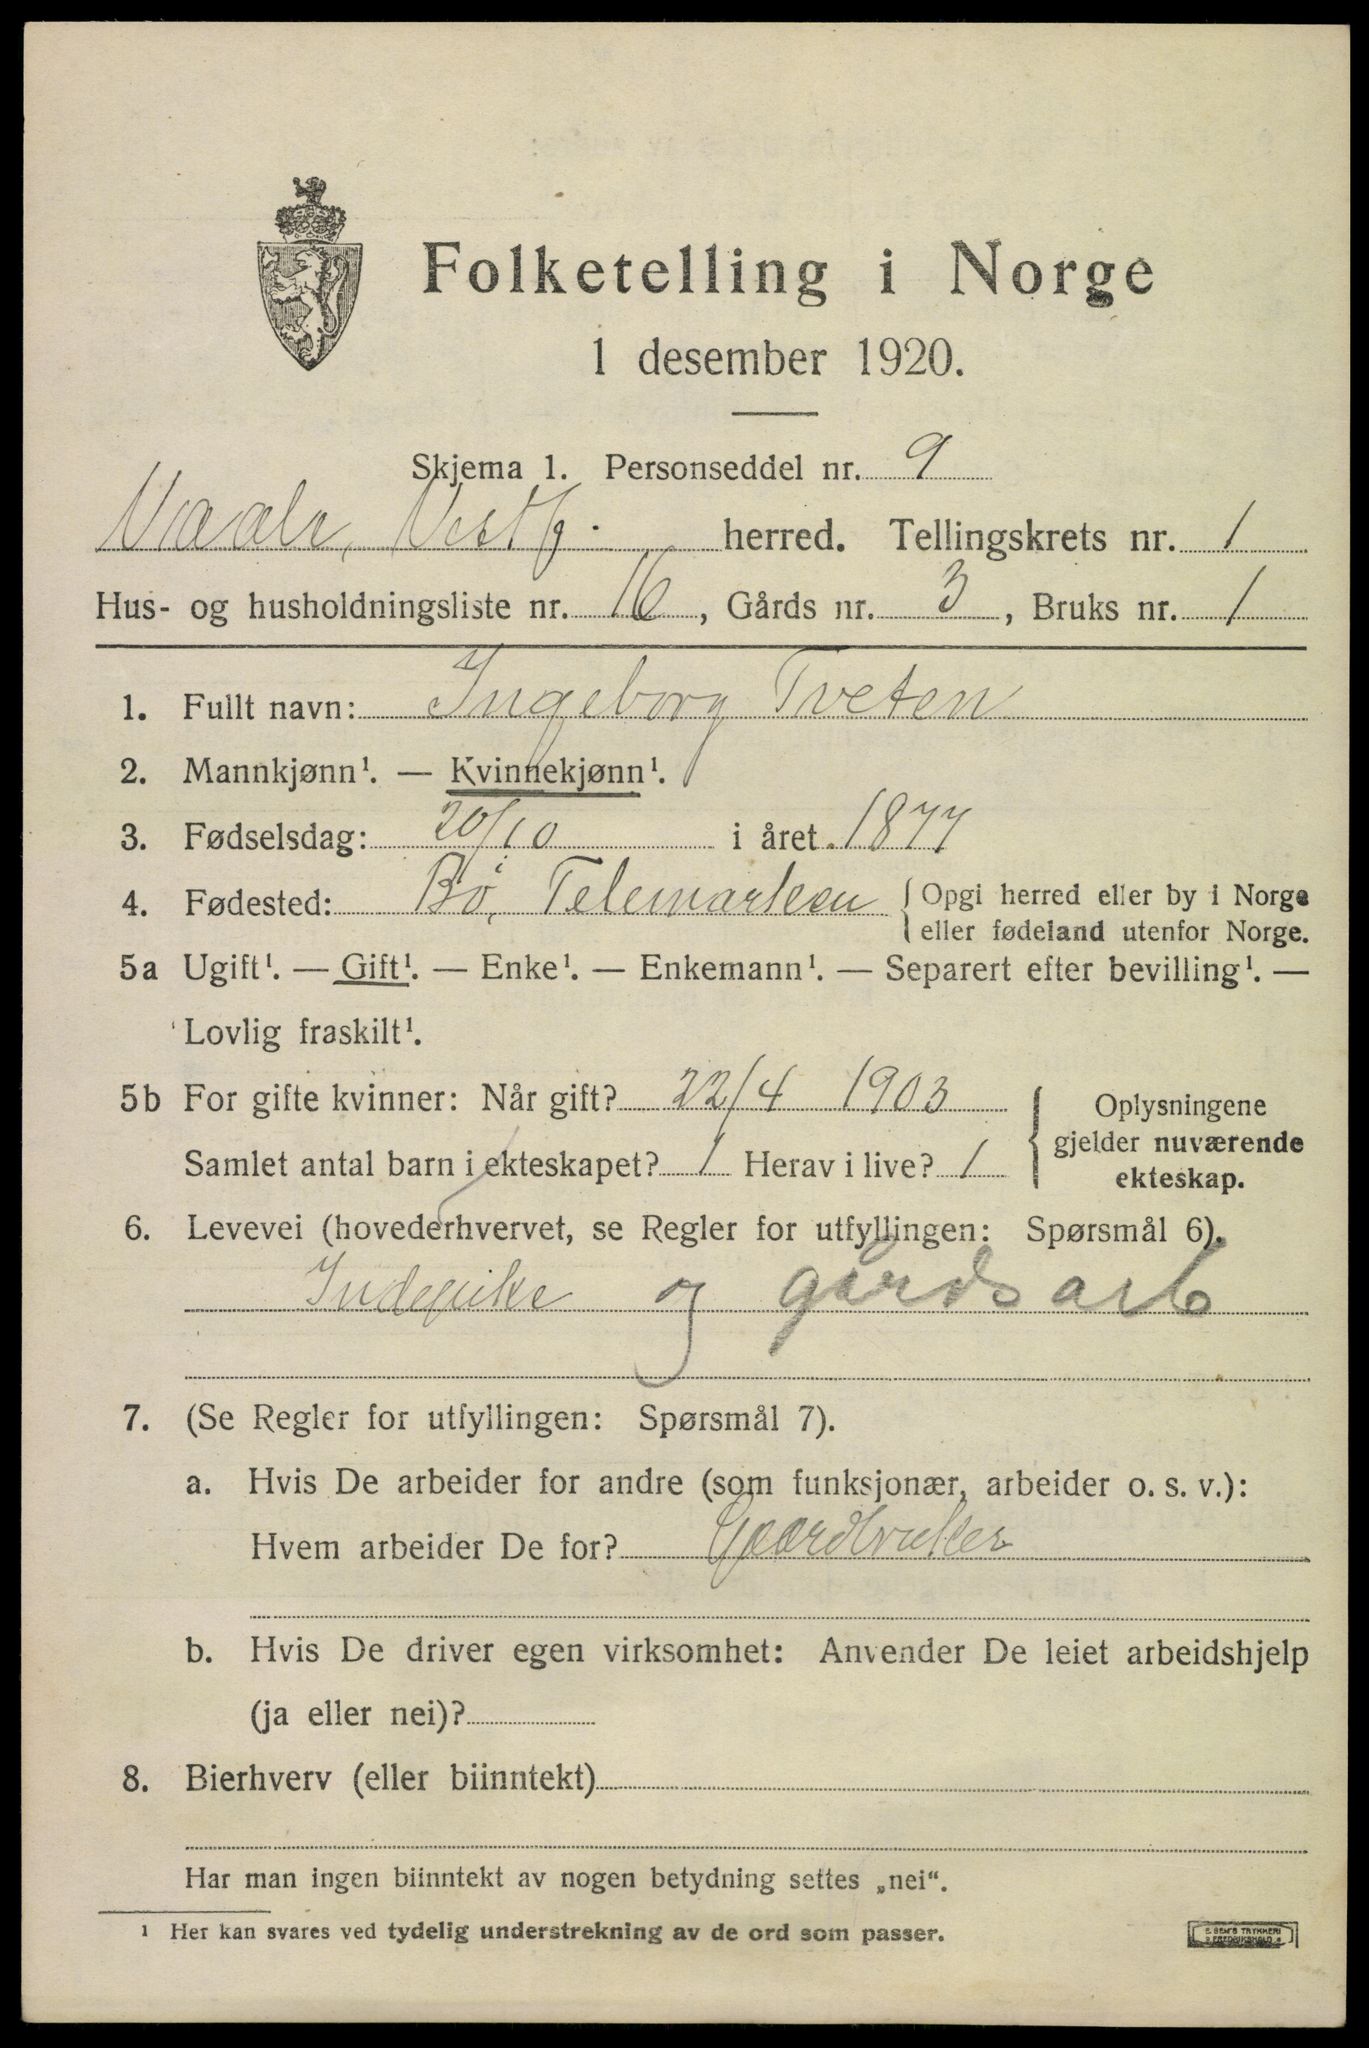 Folketelling i Norge
1 desember 1920.
Skjema 1. Personseddel nr. 9
Vaale, Vestf. herred. Tellingskrets nr. 1
Hus- og husholdningsliste nr. 16, Gårds nr. 3, Bruks nr. 1
1. Fullt navn: Ingeborg Tveten
2. Mannkjønn¹. — Kvinnekjønn¹.
3. Fødselsdag: 20/10 i året 1877
4. Fødested: Bø, Telemarken { Opgi herred eller by i Norge
eller fødeland utenfor Norge.
5a Ugift¹. — Gift¹. — Enke¹. — Enkemann¹. — Separert efter bevilling¹. —
Lovlig fraskilt¹.
5b For gifte kvinner: Når gift? 22/4 1903
Samlet antal barn i ekteskapet? 1 Herav i live? 1
{ Oplysningene
gjelder nuværende
ekteskap.
6. Levevei (hovederhvervet, se Regler for utfyllingen: Spørsmål 6).
Indepike og gårdsarb
7. (Se Regler for utfyllingen: Spørsmål 7).
a. Hvis De arbeider for andre (som funksjonær, arbeider o. s. v.):
Hvem arbeider De for? Gaardbruker
b. Hvis De driver egen virksomhet: Anvender De leiet arbeidshjelp
(ja eller nei)?
8. Bierhverv (eller biinntekt)
Har man ingen biinntekt av nogen betydning settes „nei“.
¹ Her kan svares ved tydelig understrekning av de ord som passer.